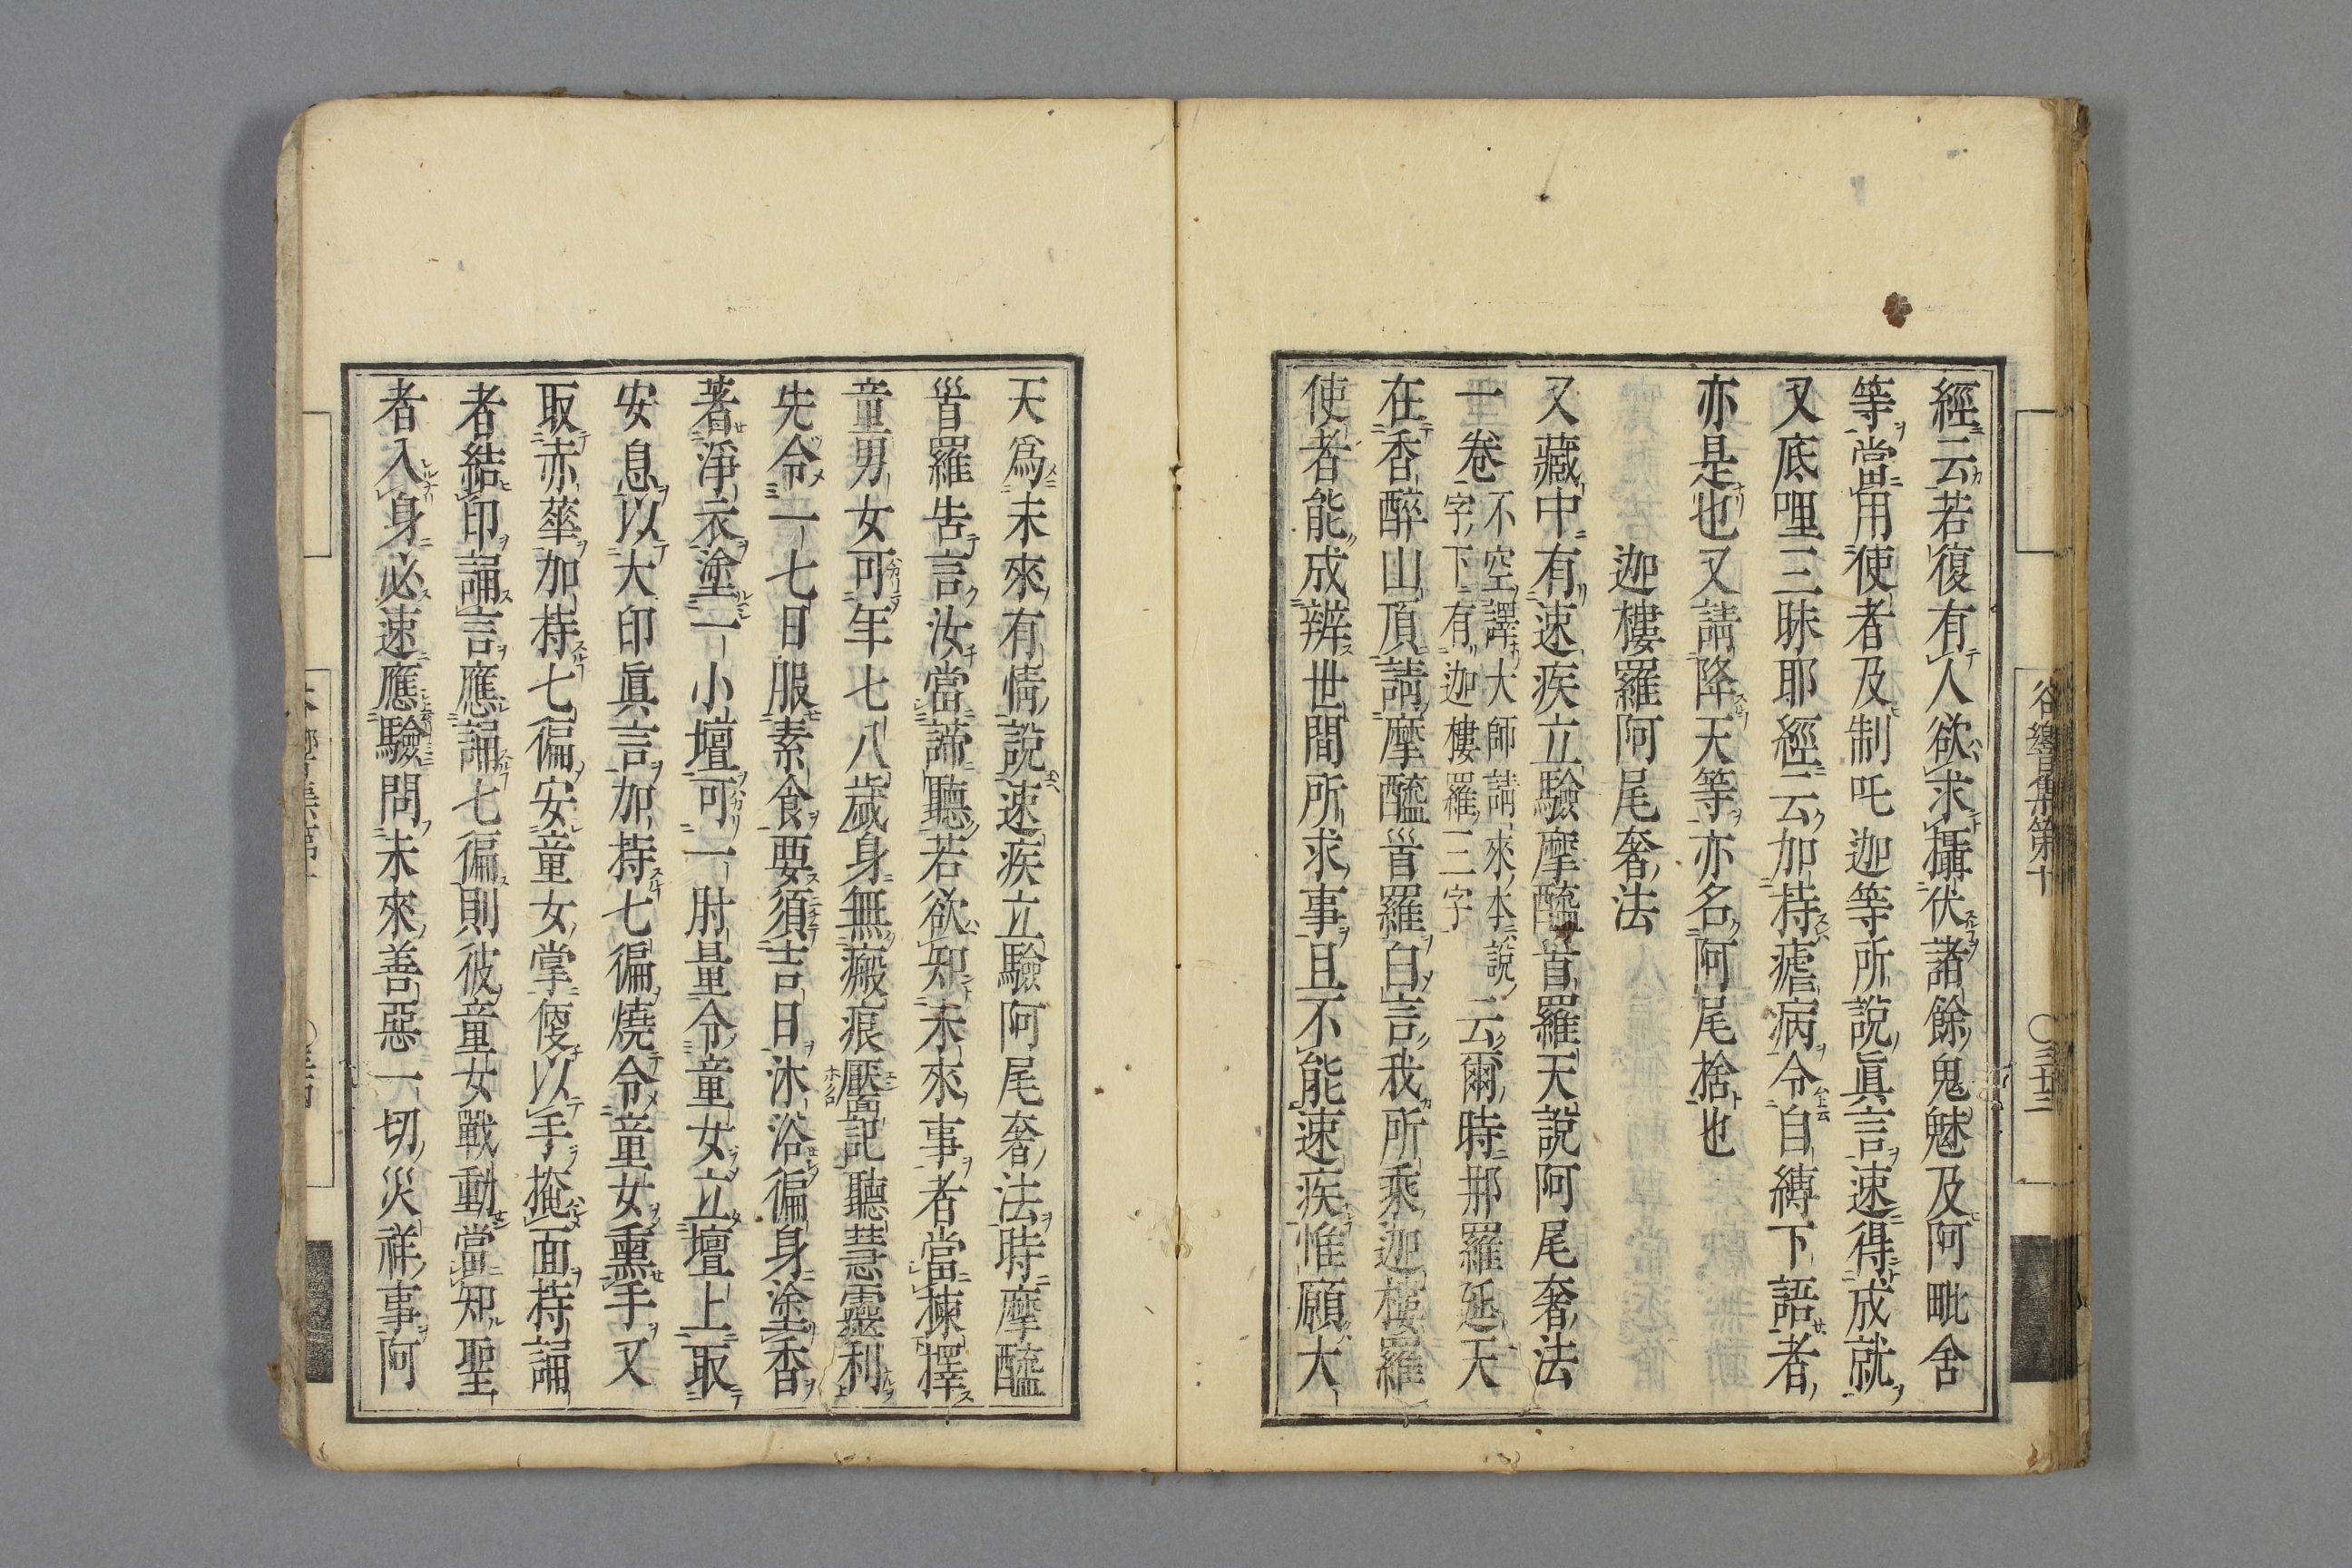 經云若復有人欲求攝伏諸餘鬼魅及阿毗舍
等當用使者及制吒迦等所說眞言速得成就
又底哩三昧耶經云加持瘧病令自縛下語者
亦是也又請降天等亦名阿尾捨也
迦樓羅阿尾奢法
又藏中有速疾立驗摩醯首羅天說阿尾奢法
一卷不空譯大師請來本說
字下有迦樓羅三字云爾時那羅延天
在香醉山頂請摩醯首羅白言我所乘迦樓羅
使者能成辨世間所求事且不能速疾惟願大
天爲未來有情說速疾立驗阿尾奢法時摩醯
首羅告言汝當諦聽若欲知未來事者當揀擇
童男女可年七八歲身無瘢痕壓記聽慧靈利
先令一七日服素食要須吉日沐浴徧身塗香
著淨衣塗一小壇可一肘量令童女立壇上取
安息以大印眞言加持七徧燒令童女熏手又
取赤華加持七徧安童女掌便以手掩面持誦
者結印誦言應誦七徧則彼童女戰動當知聖
者入身必速應驗問未來善惡一切災祥事阿
谷響集第十 〇三十三